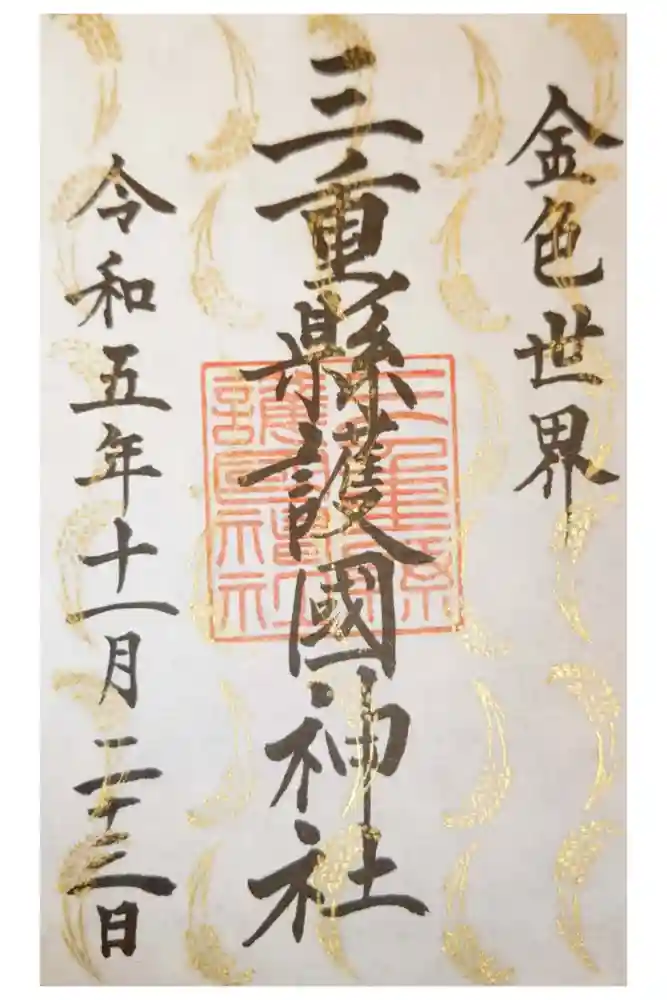 金色世界
三重縣護國神社
三重縣護國神社
令和五年十一月二十三日